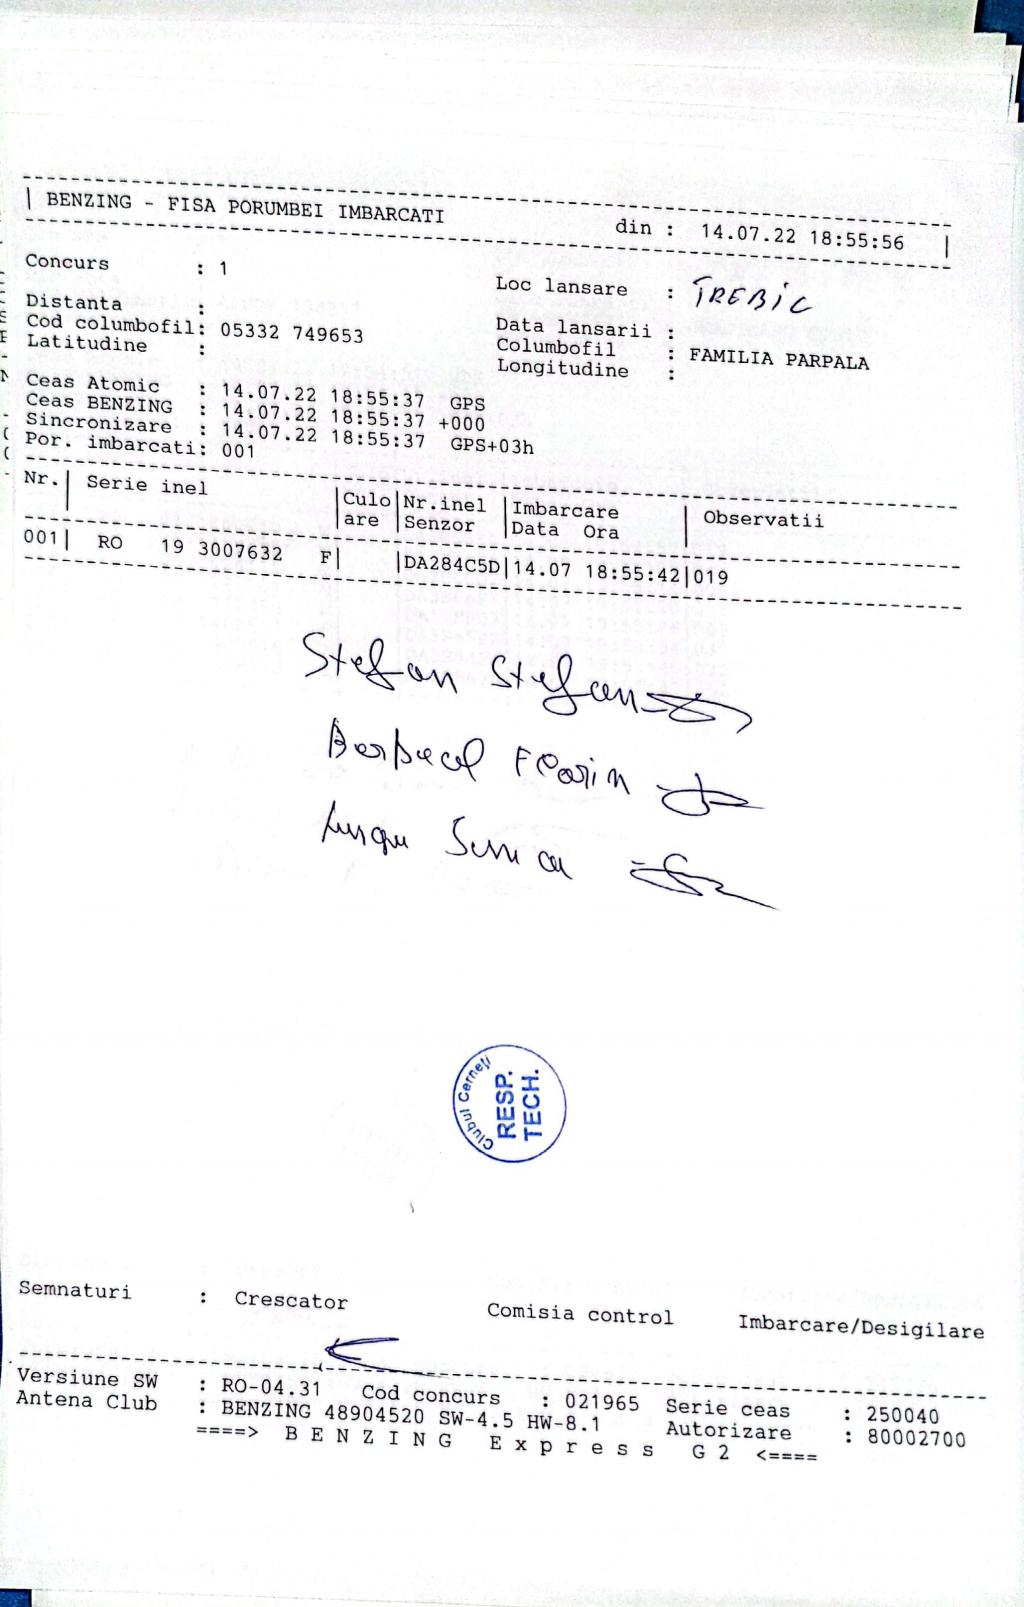 BENZING - FISA PORUMBEI IMBARCATI din : 14.07.22 18:55:56
Concurs : 1 Loc lansare : TREBIC
Distanta : Data lansarii :
Cod columbofil: 05332 749653 Columbofil : FAMILIA PARPALA
Latitudine : Longitudine :
Ceas Atomic : 14.07.22 18:55:37 GPS
Ceas BENZING : 14.07.22 18:55:37 +000
Sincronizare : 14.07.22 18:55:37 GPS+03h
Por. imbarcati: 001
Nr.| Serie inel |Culo|Nr.inel |Imbarcare | Observatii
|are |Senzor |Data Ora |
001| RO 19 3007632 F| |DA284C5D|14.07 18:55:42|019
Stefan Stefan
Florin
Clubul Cerneți
RESP.
TECH.
Semnaturi : Crescator Comisia control Imbarcare/Desigilare
Versiune SW : RO-04.31 Cod concurs : 021965 Serie ceas : 250040
Antena Club : BENZING 48904520 SW-4.5 HW-8.1 Autorizare : 80002700
====> B E N Z I N G E x p r e s s G 2 <====